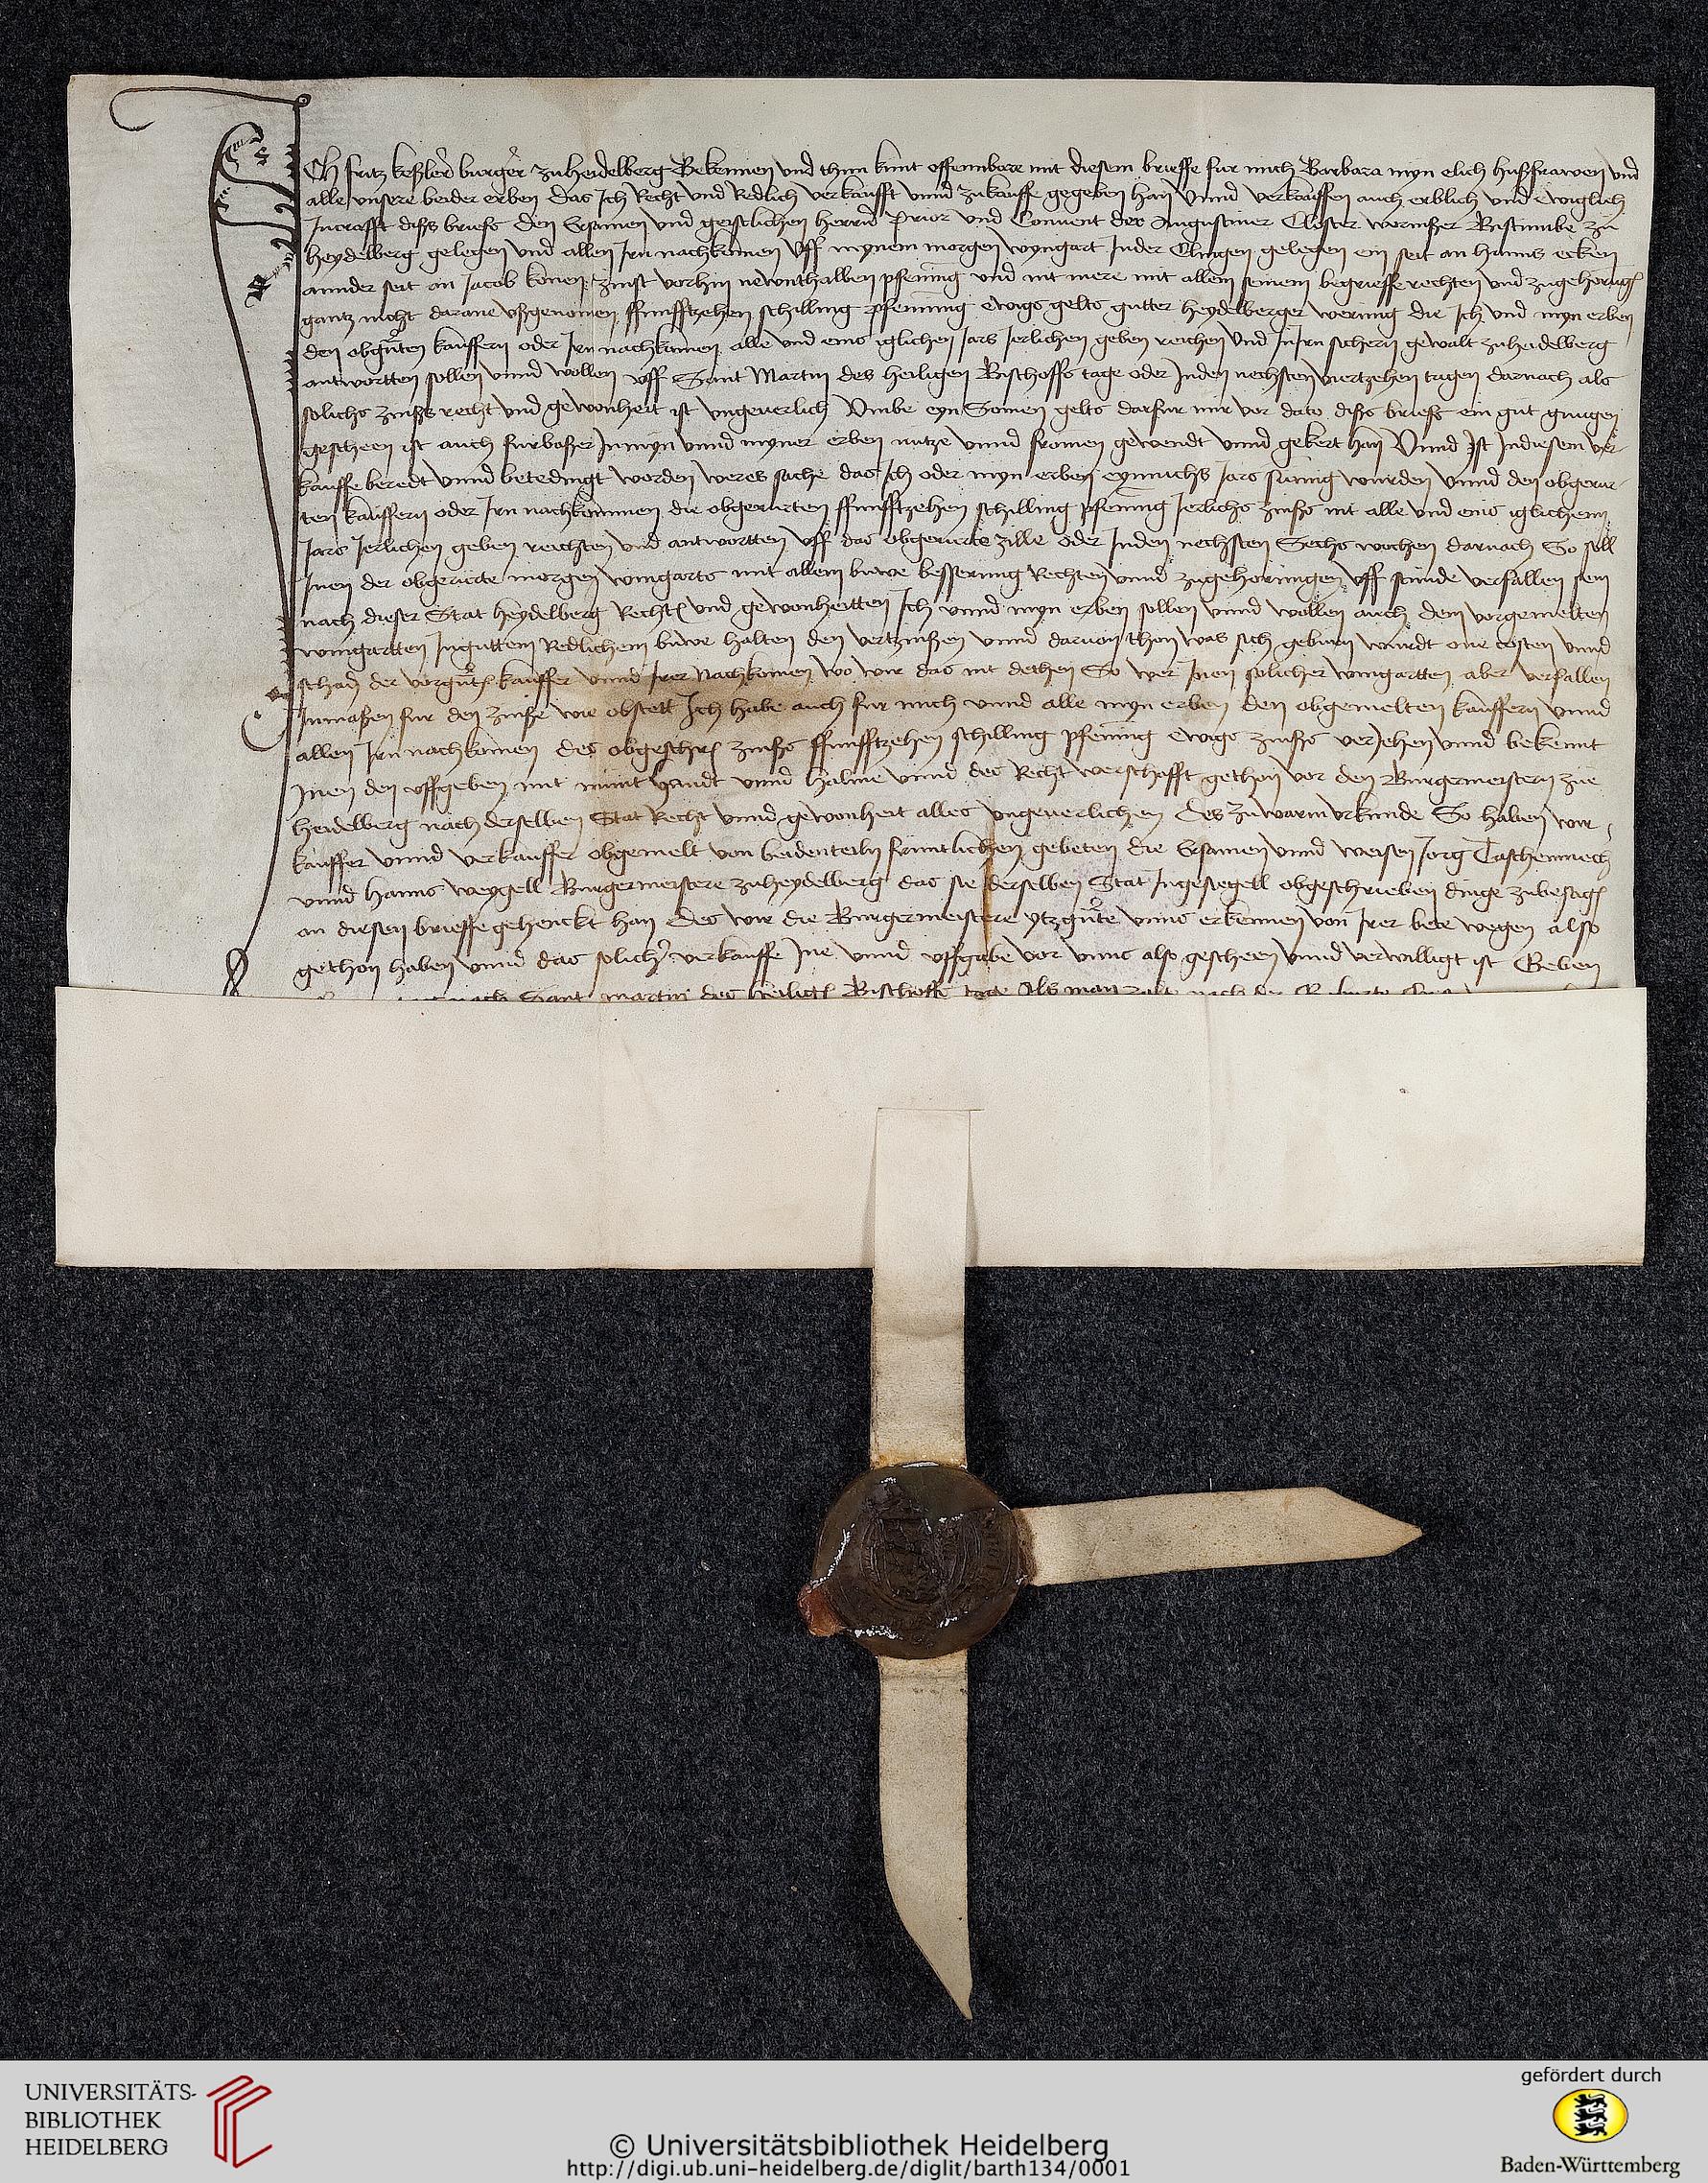 Ich fritz keßler burger zu heidelberg Bekennen vnd thun kunt offennbare mit diesem brieffe fur mich Barbara myn elich hußfrawen vnd
alle vnsere beider erben das Ich Recht vnd Redlich verkaufft vnnd zukauffe gegeben han Vnnd verkauffen auch erblich vnd ewiglich
Incrafft diß brieffs den Ersamen vnd geistlichen herrn Prior vnd Conuent des Augustiner Closter wormßer Bistumbe zu
heydelberg gelegen vnd allen Irn nachkomen Vff mynem morgen wyngart Inder Clingen gelegen ein seit an hanns ecken
annder seit an Jacob konen zinst vorhin newnthalben pfennig vnd nit mere mit allem seinem begrieffe rechten vnd zugehorung
gantz nicht darane vßgenomen ffunfftzehen schilling pfennig ewigs gelts gutter heydelberger werung die Ich vnd myn erben
den obgnten kauffern oder Irn nachkomen alle vnd eins iglichen Jars Jerlichen geben reichen vnd In Irn sichern gewalt zu heidelberg
antwortten sollen vnnd wollen vff Sannt Martin des heiligen Bischoffs tage oder Inden nechsten viertzehen tagen darnach als
solichs zinßs recht vnd gewonheit ist vngeuerlich Vmbe eyn Somen gelts darfur mir vor dato diß brieffs ein gut gnugen
gescheen ist auch furbaßer In myn vnnd myner erben nutze vnnd fromen gewendt vnnd gekert han Vnnd Ist Indiesem ver-
kauffe beredt vnnd betedingt worden weres sache das Ich oder myn erben eynnichs Jars sumig wurden vnnd den obgerur-
ten kauffern oder Irn nachkommen die obgerurten ffunfftzehen schilling pfennig Jerlichs zinßs nit alle vnd eins iglichenn
Jars Jerlichen geben reichten vnd antwortten vff das obgerurte zille oder Inden nechsten Sechs wochen darnach So soll
Inen der obgerurte morgen wingarts mit allem buwe besserung Rechten vnnd zugehorungen vff stunde verfallen sein
nach dieser Stat heydelberg Recht vnd gewonheitten Ich vnnd myn erben sollen vnnd wollen auch den vorgemelten
wingartten Inguttem Redlichem buwe halten den vertzinßen vnnd daruon thon was sich geburn wurdt one costen vnnd
schad der vorgnt kauffer vnnd Irer Nachkomen wo wir das nit dethen So wer Inen solicher wingartten aber verfallen
Inmaßen fur den zinße wie obstett Ich habe auch fur mich vnnd alle myn erben den obgemelten kauffern vnnd
allen Irn nachkomen des obgeschr zinßs ffunfftzehen schilling pfennig ewigs zinßs verjehen vnnd bekennt
Inen den vffgeben mit munt handt vnnd halme vnnd des Recht werschafft gethon vor den Burgermeistern zue
heidelberg nach derselben Stat Recht vnnd gewonheit alles vngeuerlichen Des zu warm vrkunde So haben wir
kauffer vnnd verkauffer obgemelt von beidenteiln sampt­lichen gebeten die Ersamen vnnd weisen Jorg
vnnd hanns weygell Burgermeistere zu heydelberg das sie derselben Stat Ingesiegell obgeschrieben dinge zubesag
an diesen brieffe gehenckt han Des wir die Burgermeistere ytzgnte vnns erkennen von Irer bete wegen also
gethon haben vnnd das solich verkauffe Ine vnnd vffgabe vor vnns also gescheen vnnd verwilligt ist Geben
nach Sant martin des heilig Bischoffs tage Als man zalt nach der Geburt
UNIVERSITÄTS-
BIBLIOTHEK
HEIDELBERG
© Universitätsbibliothek Heidelberg
http://digi.ub.uni-heidelberg.de/diglit/barth134/0001
gefördert durch
Baden-Württemberg